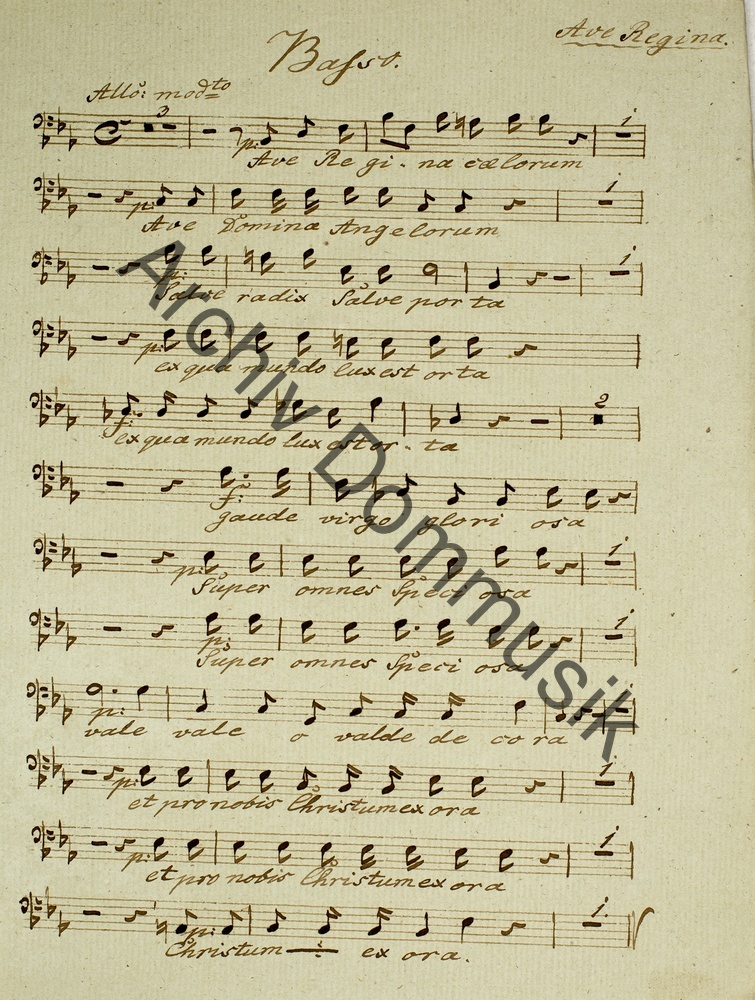 Ave Regina.
Basso.
Allo: modto
3
p:
1
Ave Re gi - na cælorum
p:
1
Ave Domina Angelorum
p:
1
Salve radix Salve porta
p:
ex qua mundo lux est orta
f:
2
ex qua mundo lux est or - ta
f:
gaude virgo glori osa
p:
1
Super omnes Speci osa
p:
1
Super omnes Speci osa
p:
1
vale vale o valde de co ra
p:
1
et pro nobis Christum ex ora
p:
1
et pro nobis Christum ex ora
p:
1.
Christum ex ora.
Archiv Dommusik